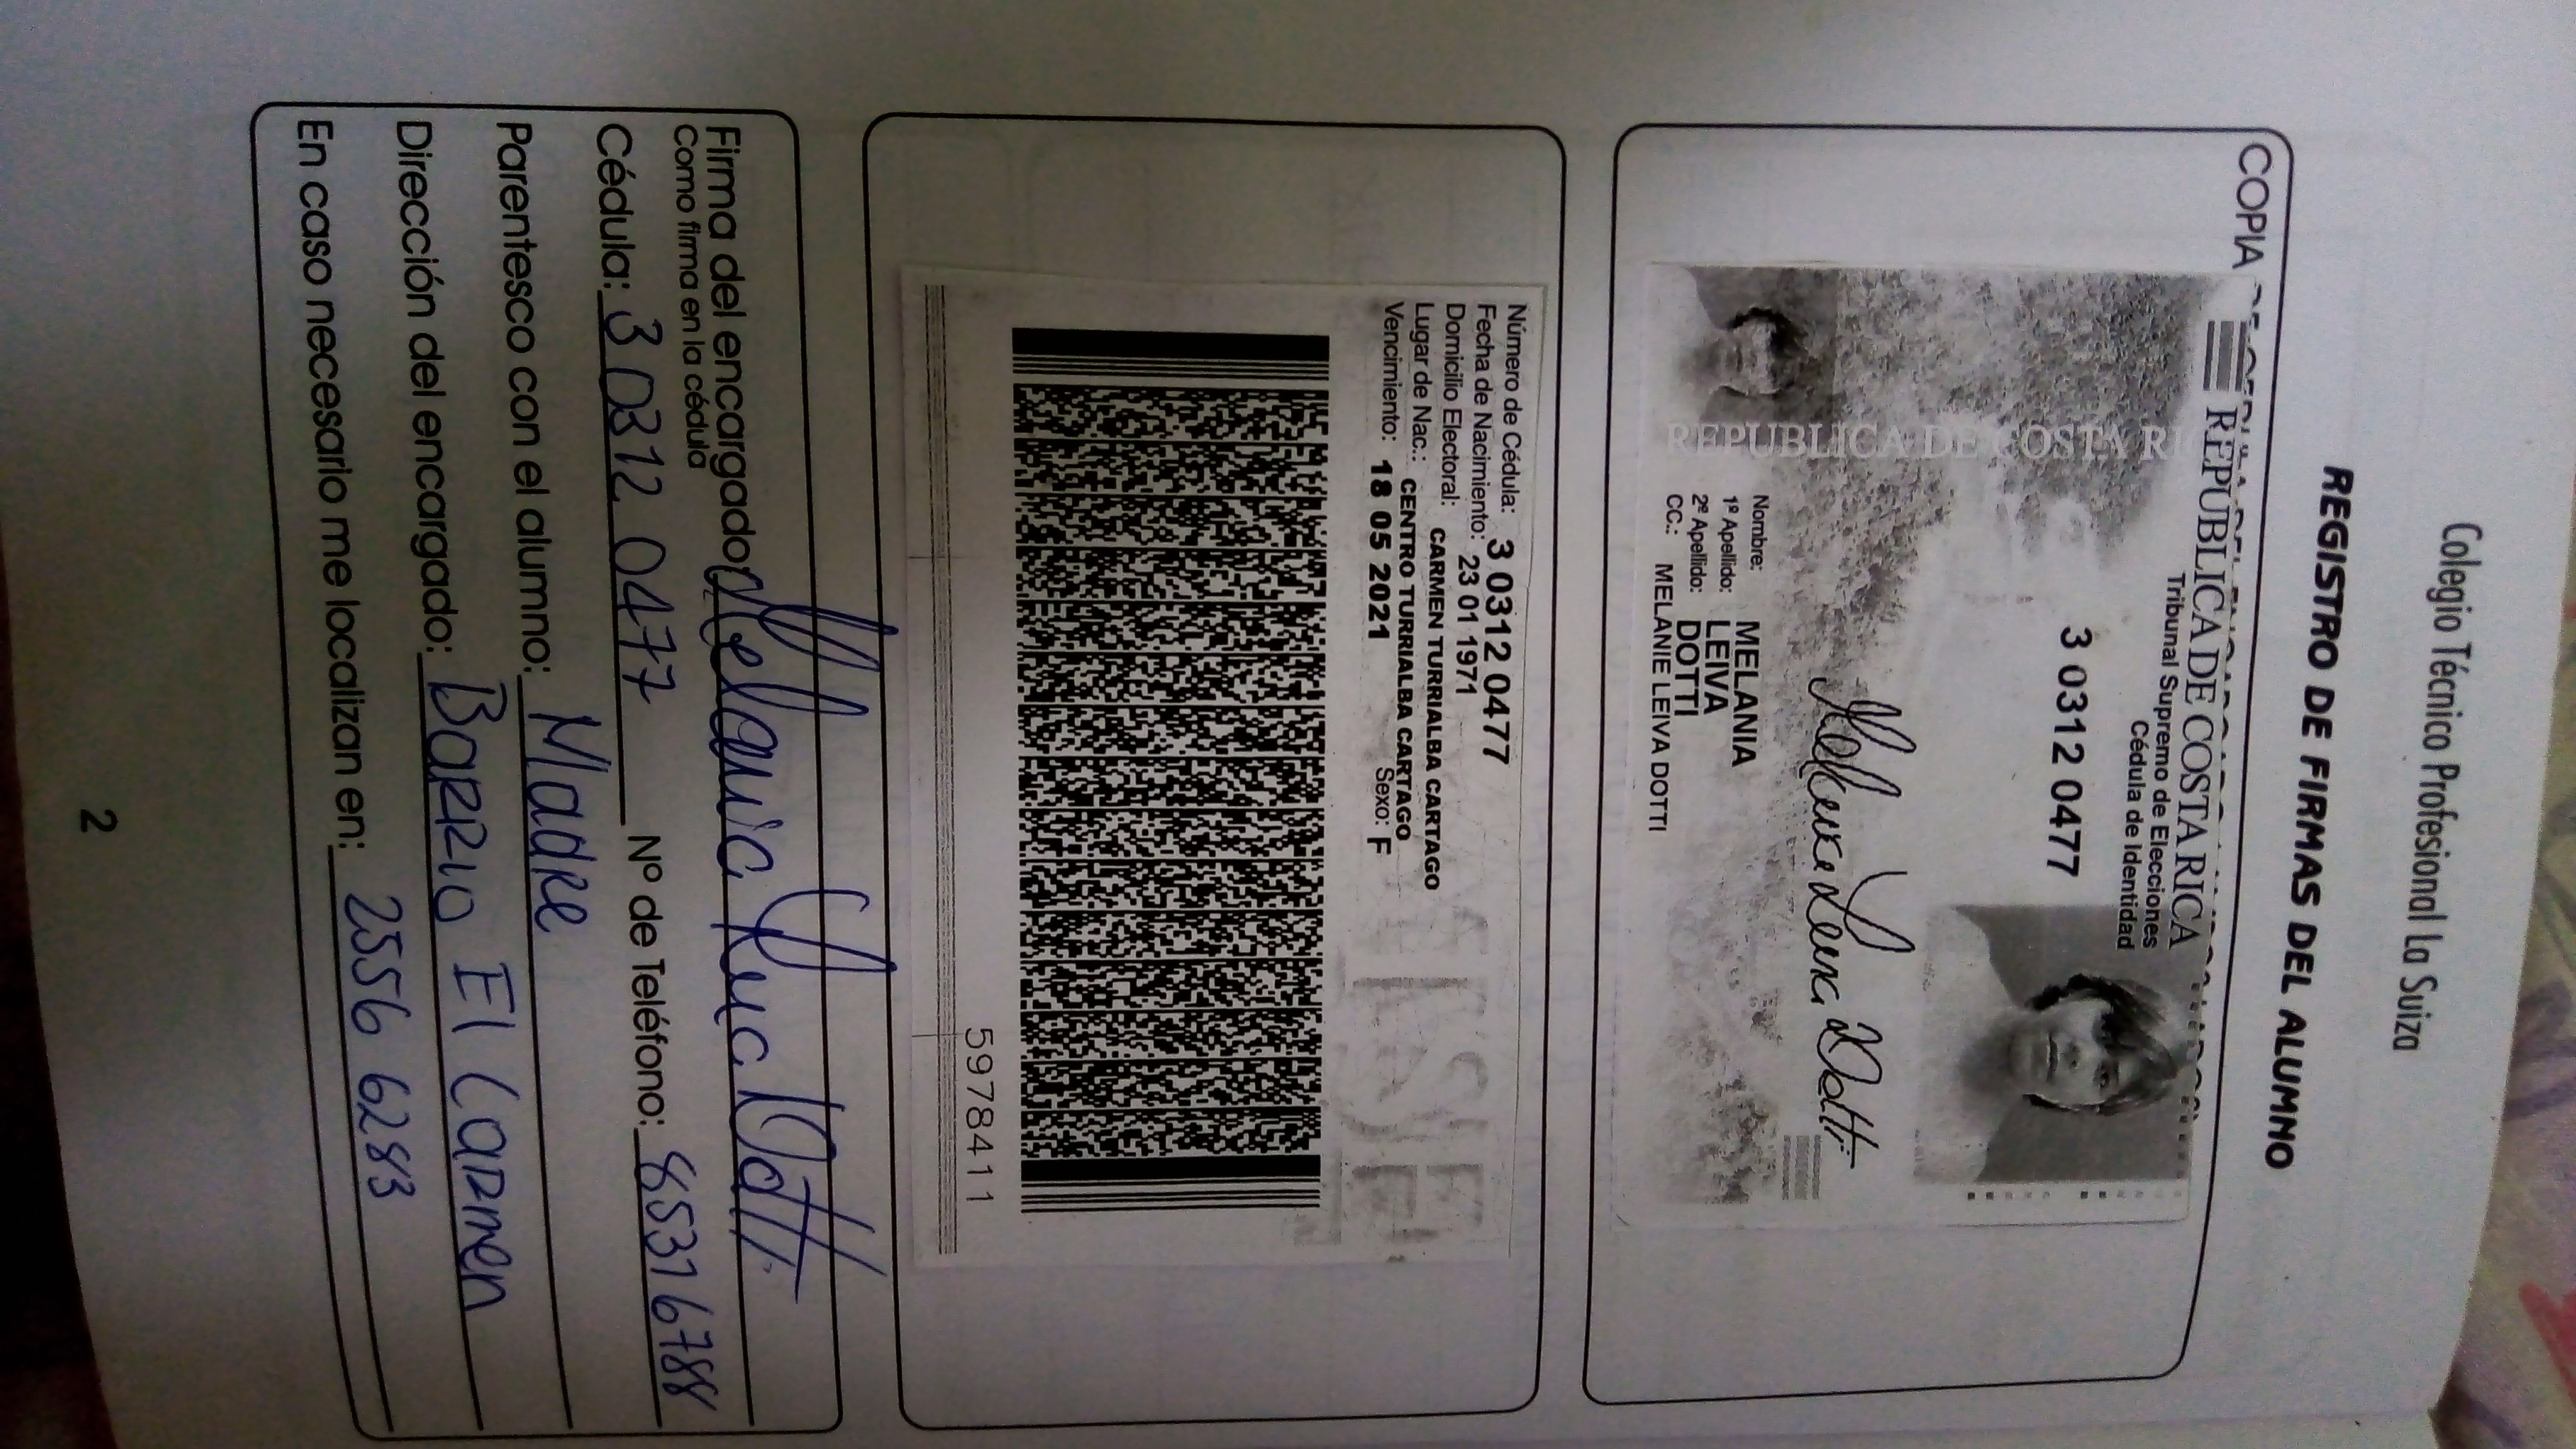 Colegio Técnico Profesional La Suiza
REGISTRO DE FIRMAS DEL ALUMNO
COPIA
REPUBLICA DE COSTA RICA
Tribunal Supremo de Elecciones
Cédula de Identidad
3 0312 0477
REPUBLICA DE COSTA RI
Melanie Leiva Dotti
Nombre: MELANIA
1º Apellido: LEIVA
2º Apellido: DOTTI
CC.: MELANIE LEIVA DOTTI
Número de Cédula: 3 0312 0477
Fecha de Nacimiento: 23 01 1971
Domicilio Electoral: CARMEN TURRIALBA CARTAGO
Lugar de Nac.: CENTRO TURRIALBA CARTAGO
Vencimiento: 18 05 2021 Sexo: F
5978411
Firma del encargado: Melanie Leiva Dotti
Como firma en la cédula
Cédula: 3 0312 0477 Nº de Teléfono: 8531 6788
Parentesco con el alumno: Madre
Dirección del encargado: Barrio El Carmen
En caso necesario me localizan en: 2556 6283
2